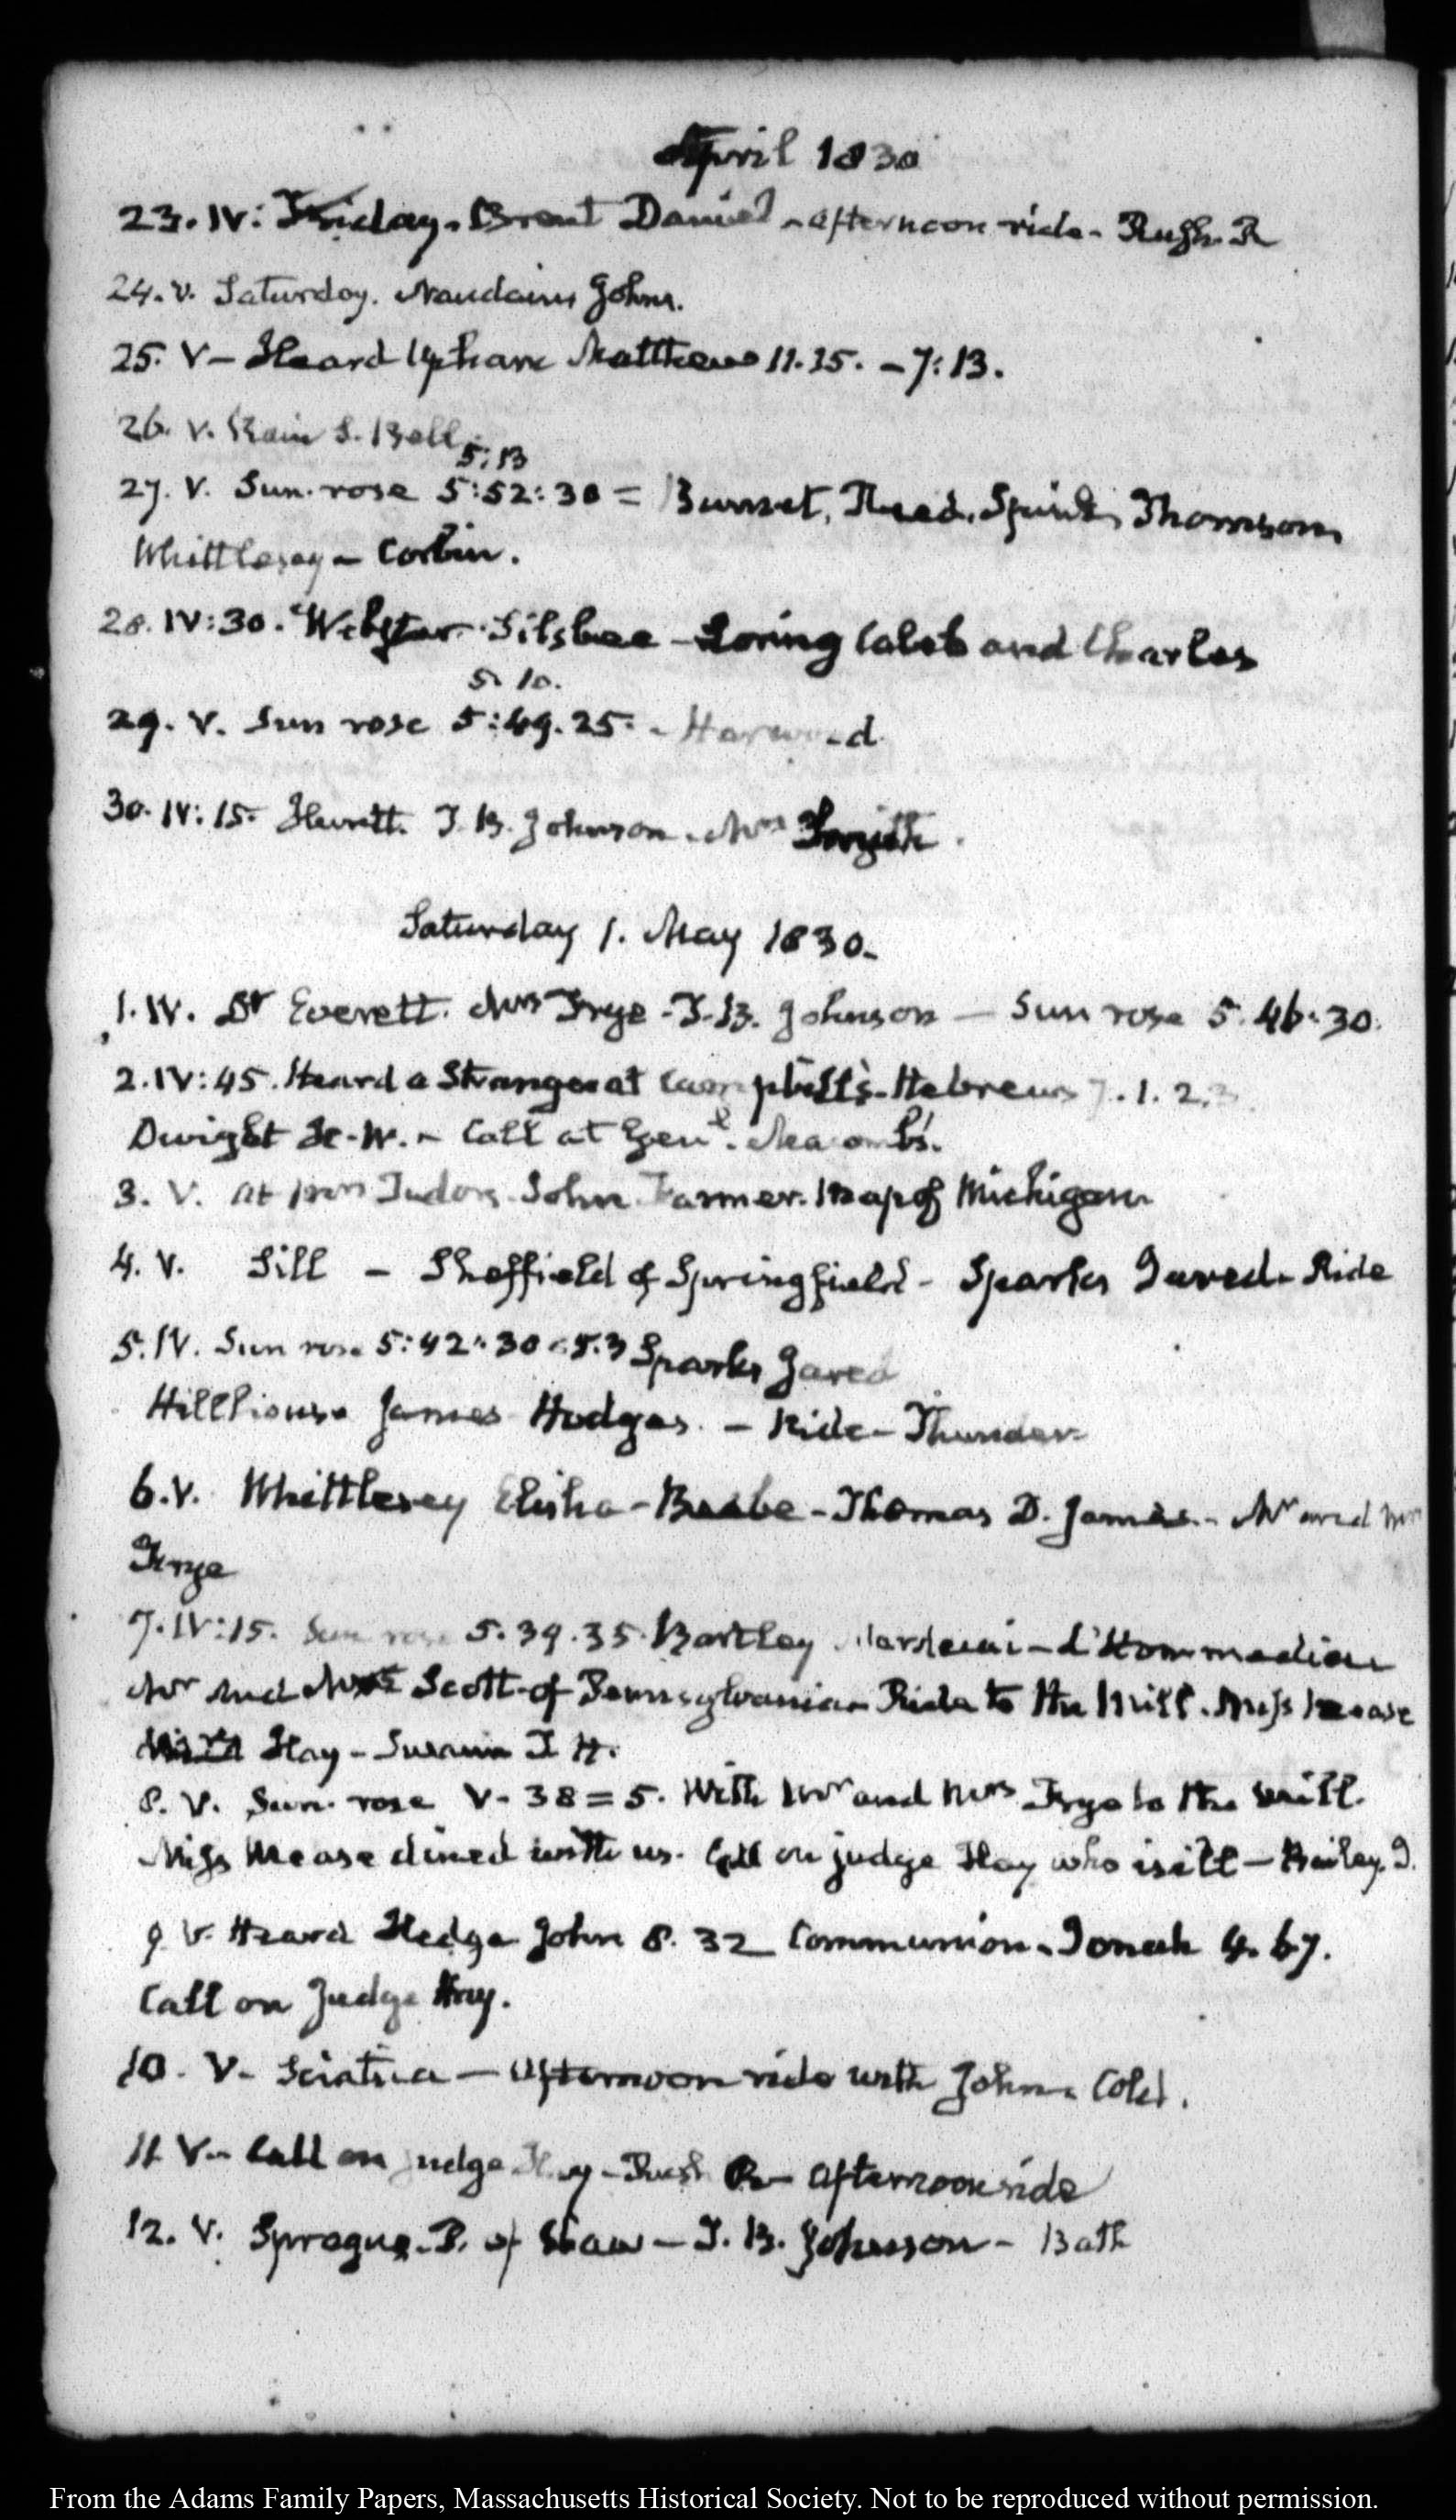 April 1830
23. IV: Friday. Brent Daniel - afternoon ride - Rush. R
24. V. Saturday. Naudain Johns.
25. V - Heard Upham Matthew 11. 15. - 7:13.
26. V. Rain S. Bell
5:13
27. V. Sun rose 5:52:30 = Burnet, Reed, Thomson,
Whittlesey - Corbin.
28. IV:30. Webster. Silsbee - Loring Caleb and Charles
5. 10.
29. V. Sun rose 5:49.25. - Harwood
30. IV:15. T. B. Johnson. Mrs Smith.
Saturday 1. May 1830.
1. IV. Dr Everett. Mrs Frye - T. B. Johnson — Sun rose 5. 46:30.
2. IV:45. Heard a Stranger at Campbell's - Hebrews 7. 1. 2.3
Dwight H. W. - Call at Genl. Macomb's.
3. V. at Mrs Tudor's. John Farmer. Map of Michigan
4. V. Sill - Sheffield of Springfield - Sparks Jared - Ride
5. IV. Sun rose 5:42:30 = 5.3 Sparks Jared
Hillhouse James Hodges. - Ride - Thunder
6. V. Whittlesey Elisha - Beebe - Thomas D. James - Mr and Mrs
Frye
7. IV:15. Sun rose 5.39.35. Bartley Mordecai - d'Hommedieu
Mr and Mrs Scott of Pennsylvania - Ride to the Mill. Miss Mease
Hay - T. H.
8. V. Sun rose V - 38 = 5. With Mr and Mrs Frye to the Mill.
Miss Mease dined with us. Call on judge Hay who is ill - Bailey. J.
9 V. Heard Hedge John 8. 32 Communion. Jonah 4. 6.7.
Call on Judge Hay.
10. V. Sciatica — Afternoon ride with John. Cold.
11 V. Call on judge Hay - Rush R - afternoon ride
12. V. Sprague. P. of Shaw - T. B. Johnson - Bath
From the Adams Family Papers, Massachusetts Historical Society. Not to be reproduced without permission.